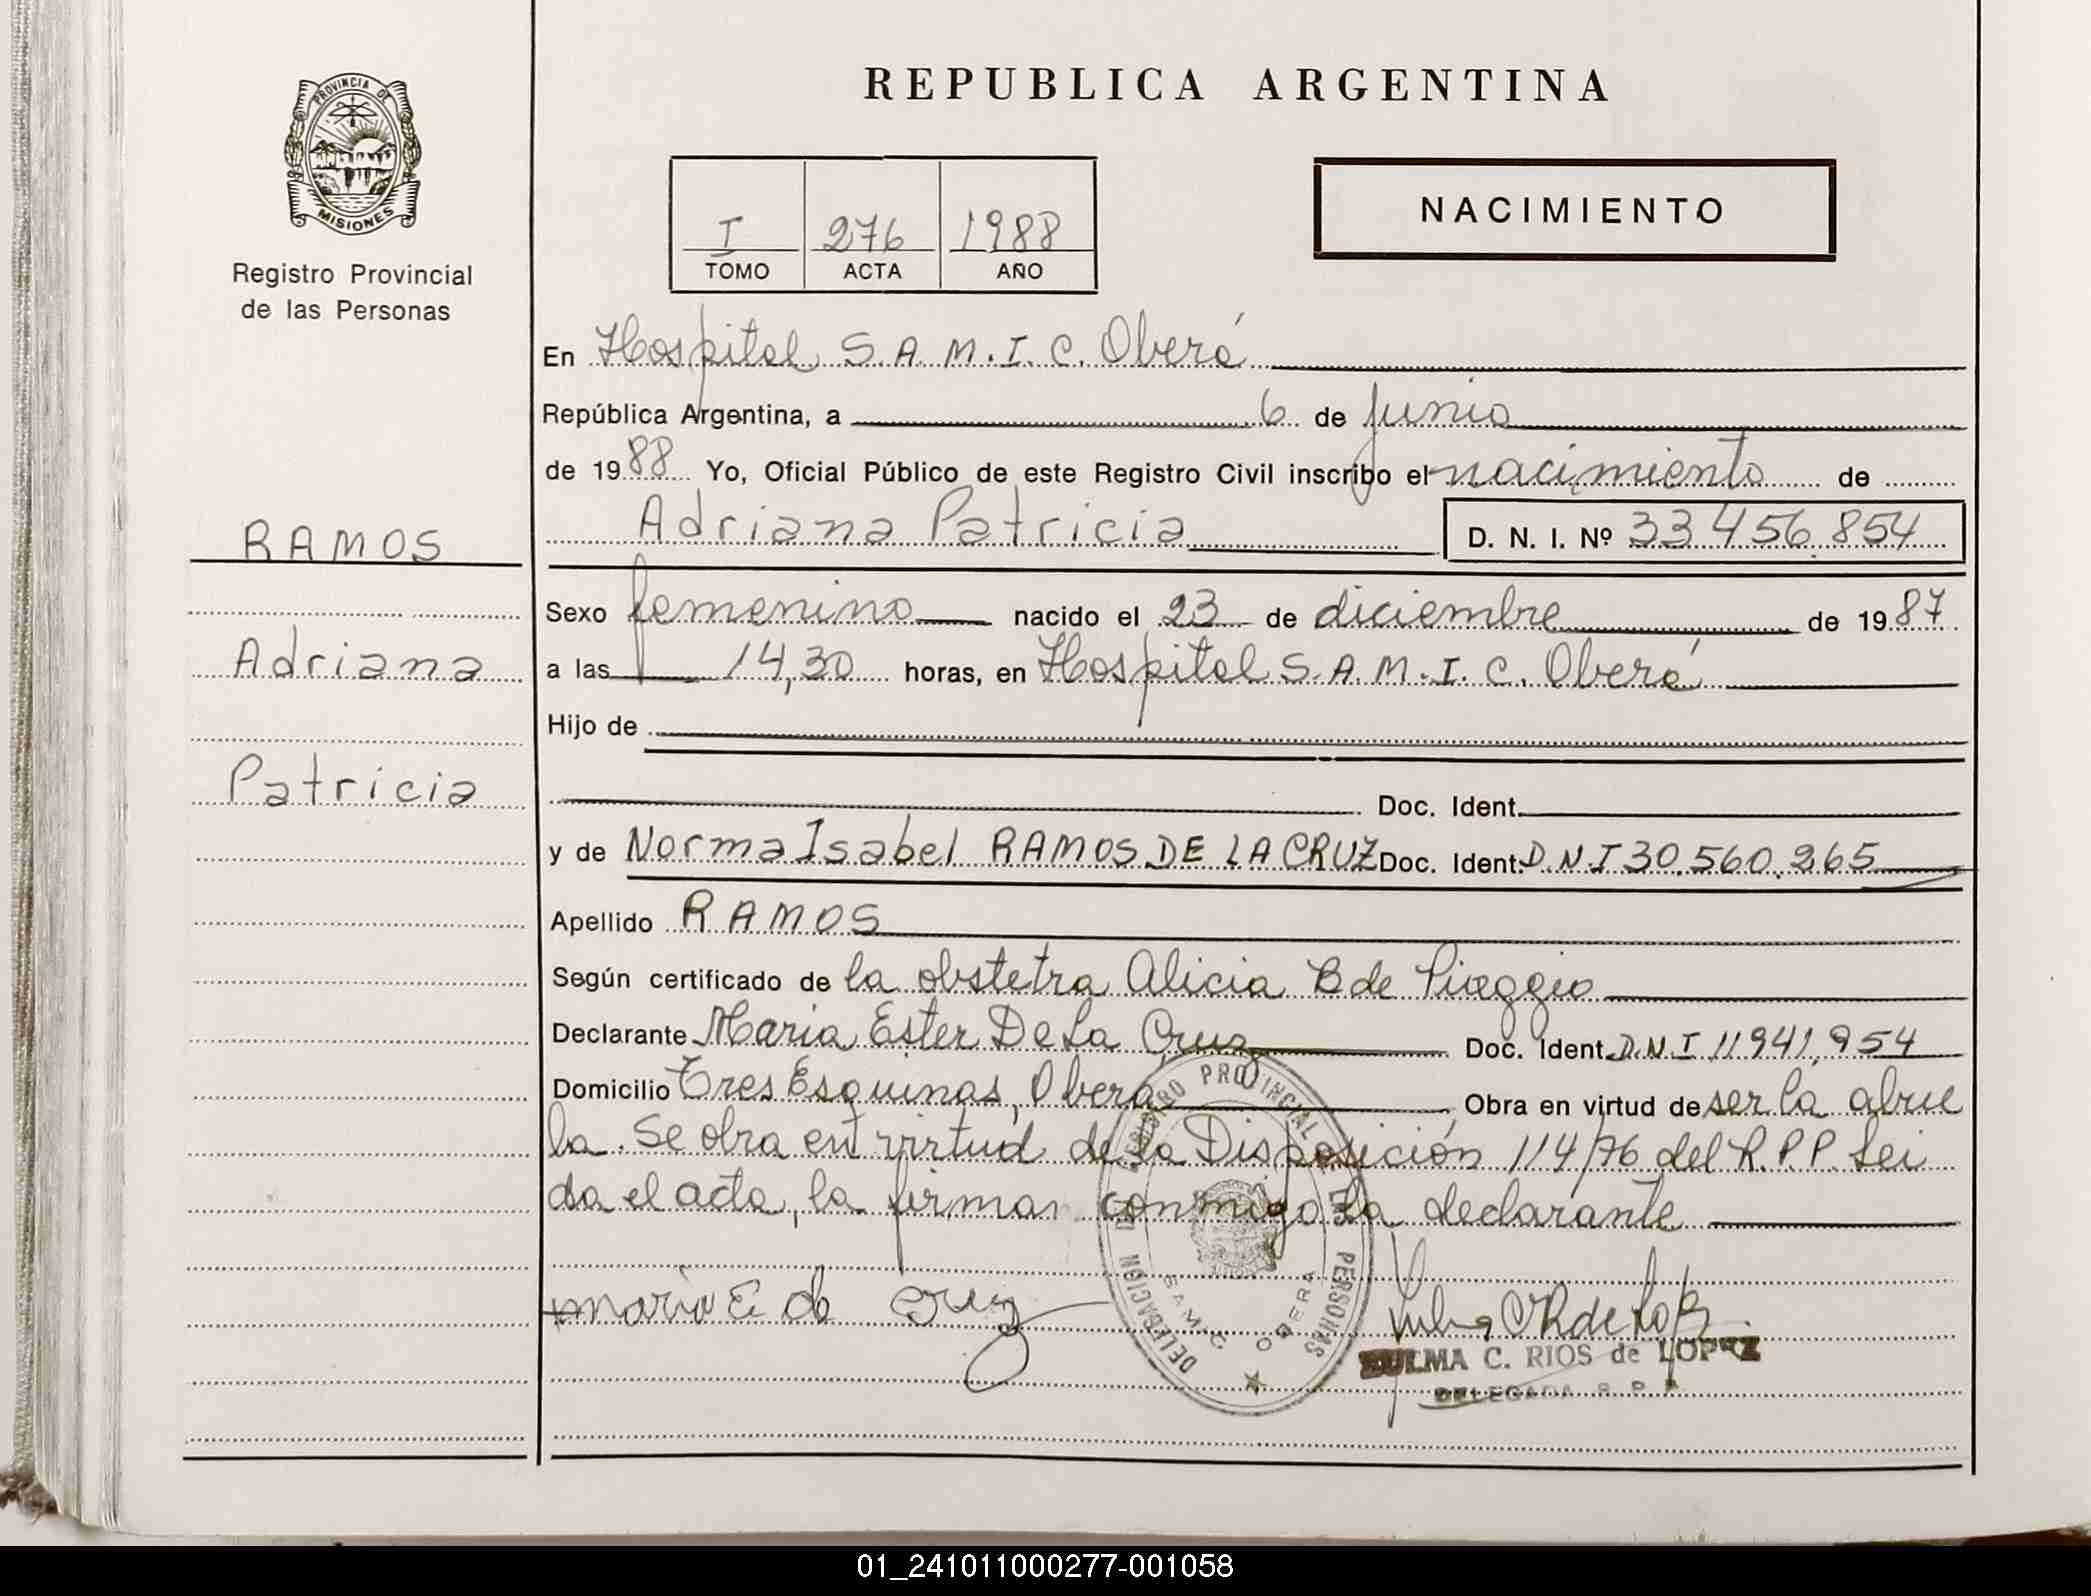 PROVINCIA DE
MISIONES
Registro Provincial
de las Personas
RAMOS
Adriana
Patricia
REPUBLICA ARGENTINA
I 276 1988
TOMO ACTA AÑO
NACIMIENTO
En Hospital S.A.M.I.C. Oberá
República Argentina, a 6 de junio
de 1988 Yo, Oficial Público de este Registro Civil inscribo el nacimiento de
Adriana Patricia D. N. I. Nº 33.456.854
Sexo femenino nacido el 23 de diciembre de 1987
a las 14,30 horas, en Hospital S.A.M.I.C. Oberá
Hijo de
Doc. Ident.
y de Norma Isabel RAMOS DE LA CRUZ Doc. Ident. D.N.I 30.560.265
Apellido RAMOS
Según certificado de la obstetra Alicia B de Piaggio
Declarante Maria Ester De La Cruz Doc. Ident. D.N.I 11941,954
Domicilio Tres Esquinas, Oberá Obra en virtud de ser la abue
la. Se obra en virtud de la Disposición 114/76 del R.P.P. Lei
da el acta, la firman conmigo La declarante
maria E da Cruz
DELEGACION REGISTRO PROVINCIAL DE LAS PERSONAS
SAMIC OBERA
ZULMA C. RIOS de LOPEZ
DELEGADA R. P. P.
01_241011000277-001058